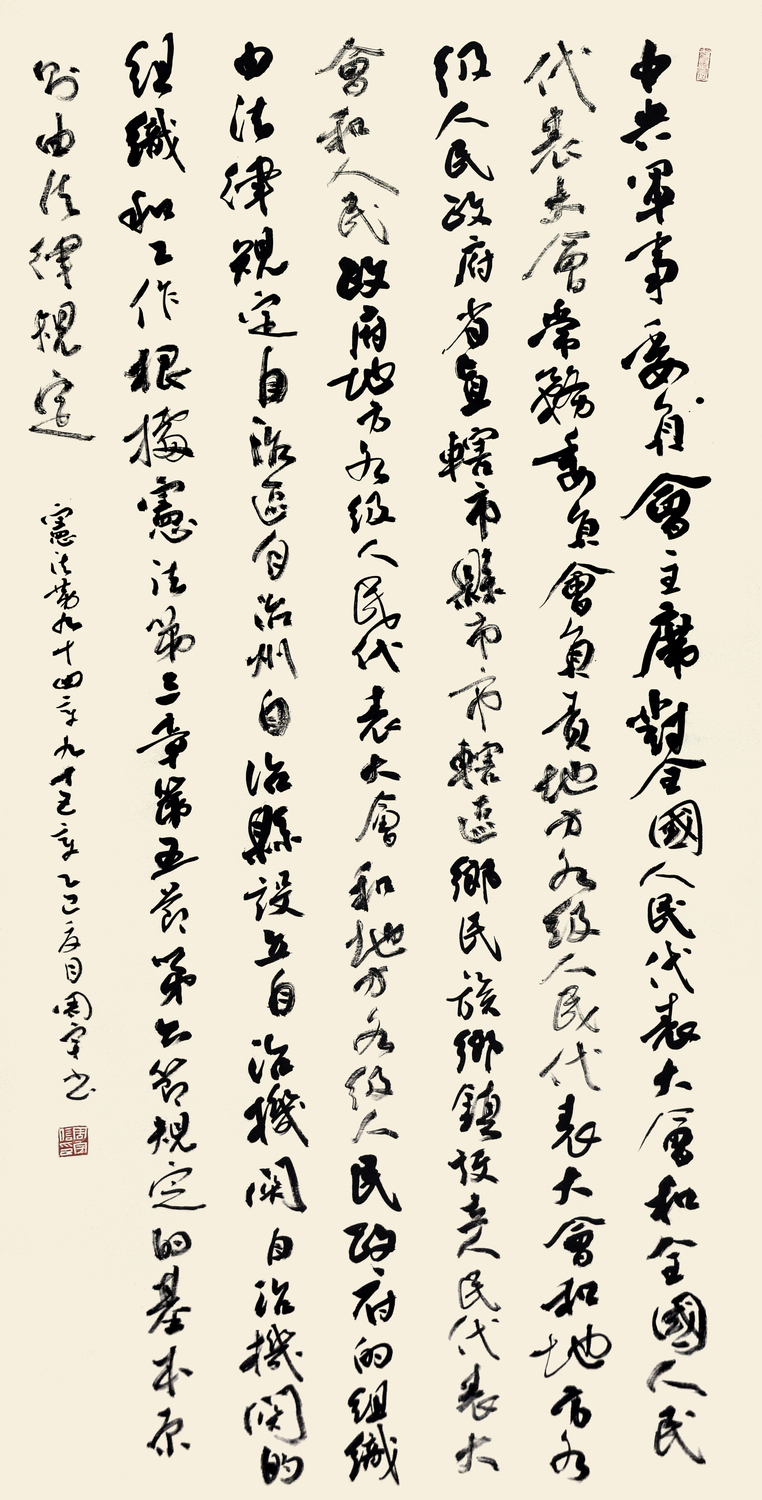 中央軍事委員會主席對全國人民代表大會和全國人民
代表大會常務委員會負責地方各級人民代表大會和地方各
級人民政府省直轄市縣市市轄區鄉民族鄉鎮設立人民代表大
會和人民政府地方各級人民代表大會和地方各級人民政府的組織
由法律規定自治區自治州自治縣設立自治機關自治機關的
組織和工作根據憲法第三章第五節第六節規定的基本原
則由法律規定
憲法第九十四章九十五章乙巳夏月周宇書